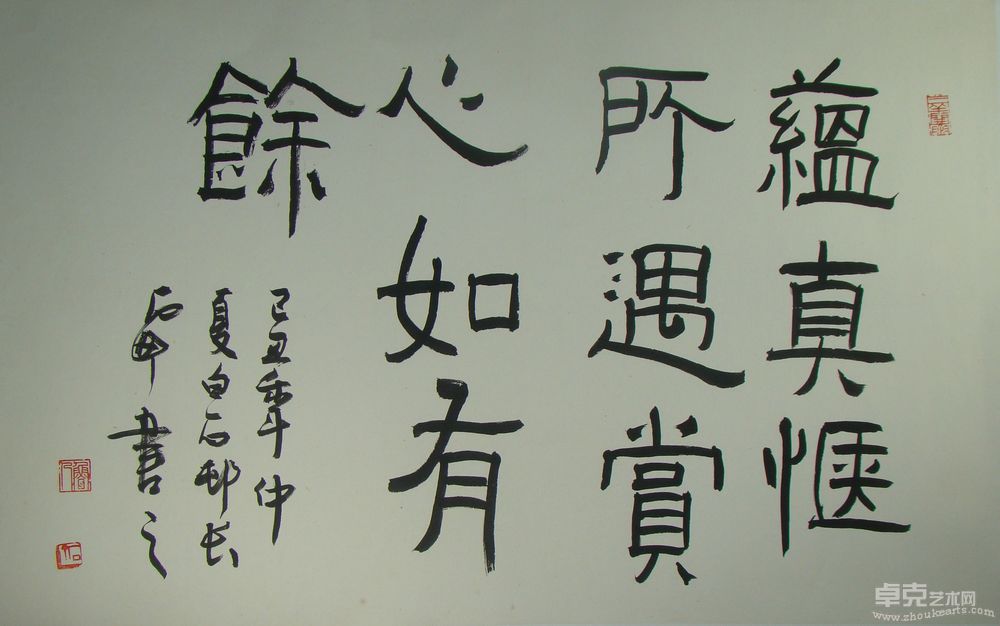 蘊真愜
所遇賞
心如有
餘
己丑年仲
夏白石邨长
石开書之
卓克艺术网
www.zhoukearts.com